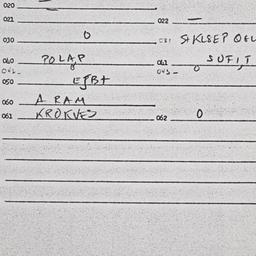 020
021 022 —
030 0 031 SKLEP OEL
040 POLAP 041 SUFIT
042 - 043 - 0
050 EJB+
060 A RAM
061 KROKVES 062 0